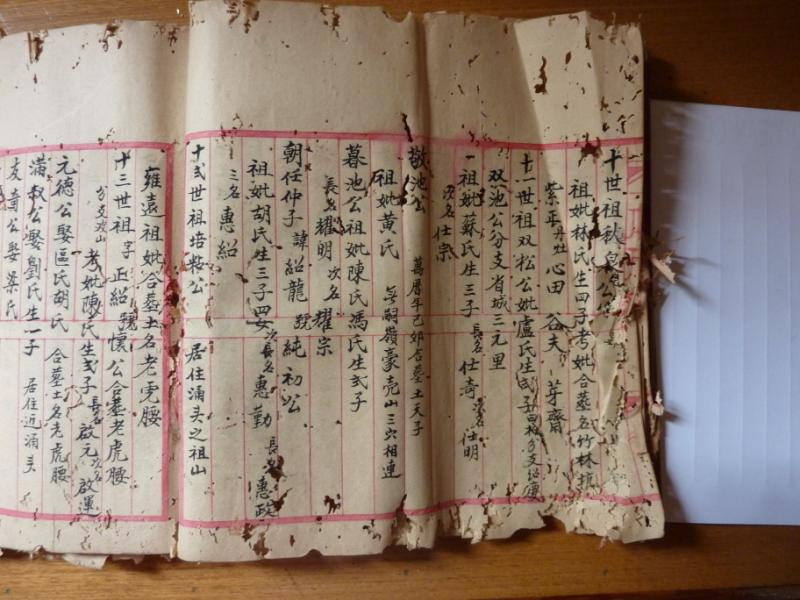 十世祖秋泉公
祖妣林氏生四子考妣合墓名竹林坑
紫正 心田 谷夫 芽齋
十一世祖双松公妣盧氏生弍子
双池公分支省城三元里
一祖妣蘇氏生三子 長名仕奇 次名仕明
次名仕宗
敬池公 萬曆年己卯合墓土天子
祖妣黃氏 嶺豪壳山三穴相連
暮池公祖妣陳氏馮氏生弍子
長名耀明 次名耀宗
朝任仲子 諱紹龍 號純初公
祖妣胡氏生三子四女 長名惠勤 惠政
三名惠紹
十弍世祖培敬公 居住涌头之祖山
雍遠祖妣合墓土名老虎腰
十三世祖字正紹號懷公合墓老虎腰
分支坟山 考妣陳氏生弍子 長名啟元 次名啟運
元德公娶區氏胡氏 合墓土名老虎腰
满叔公娶劉氏生一子 居住近涌头
友奇公娶梁氏